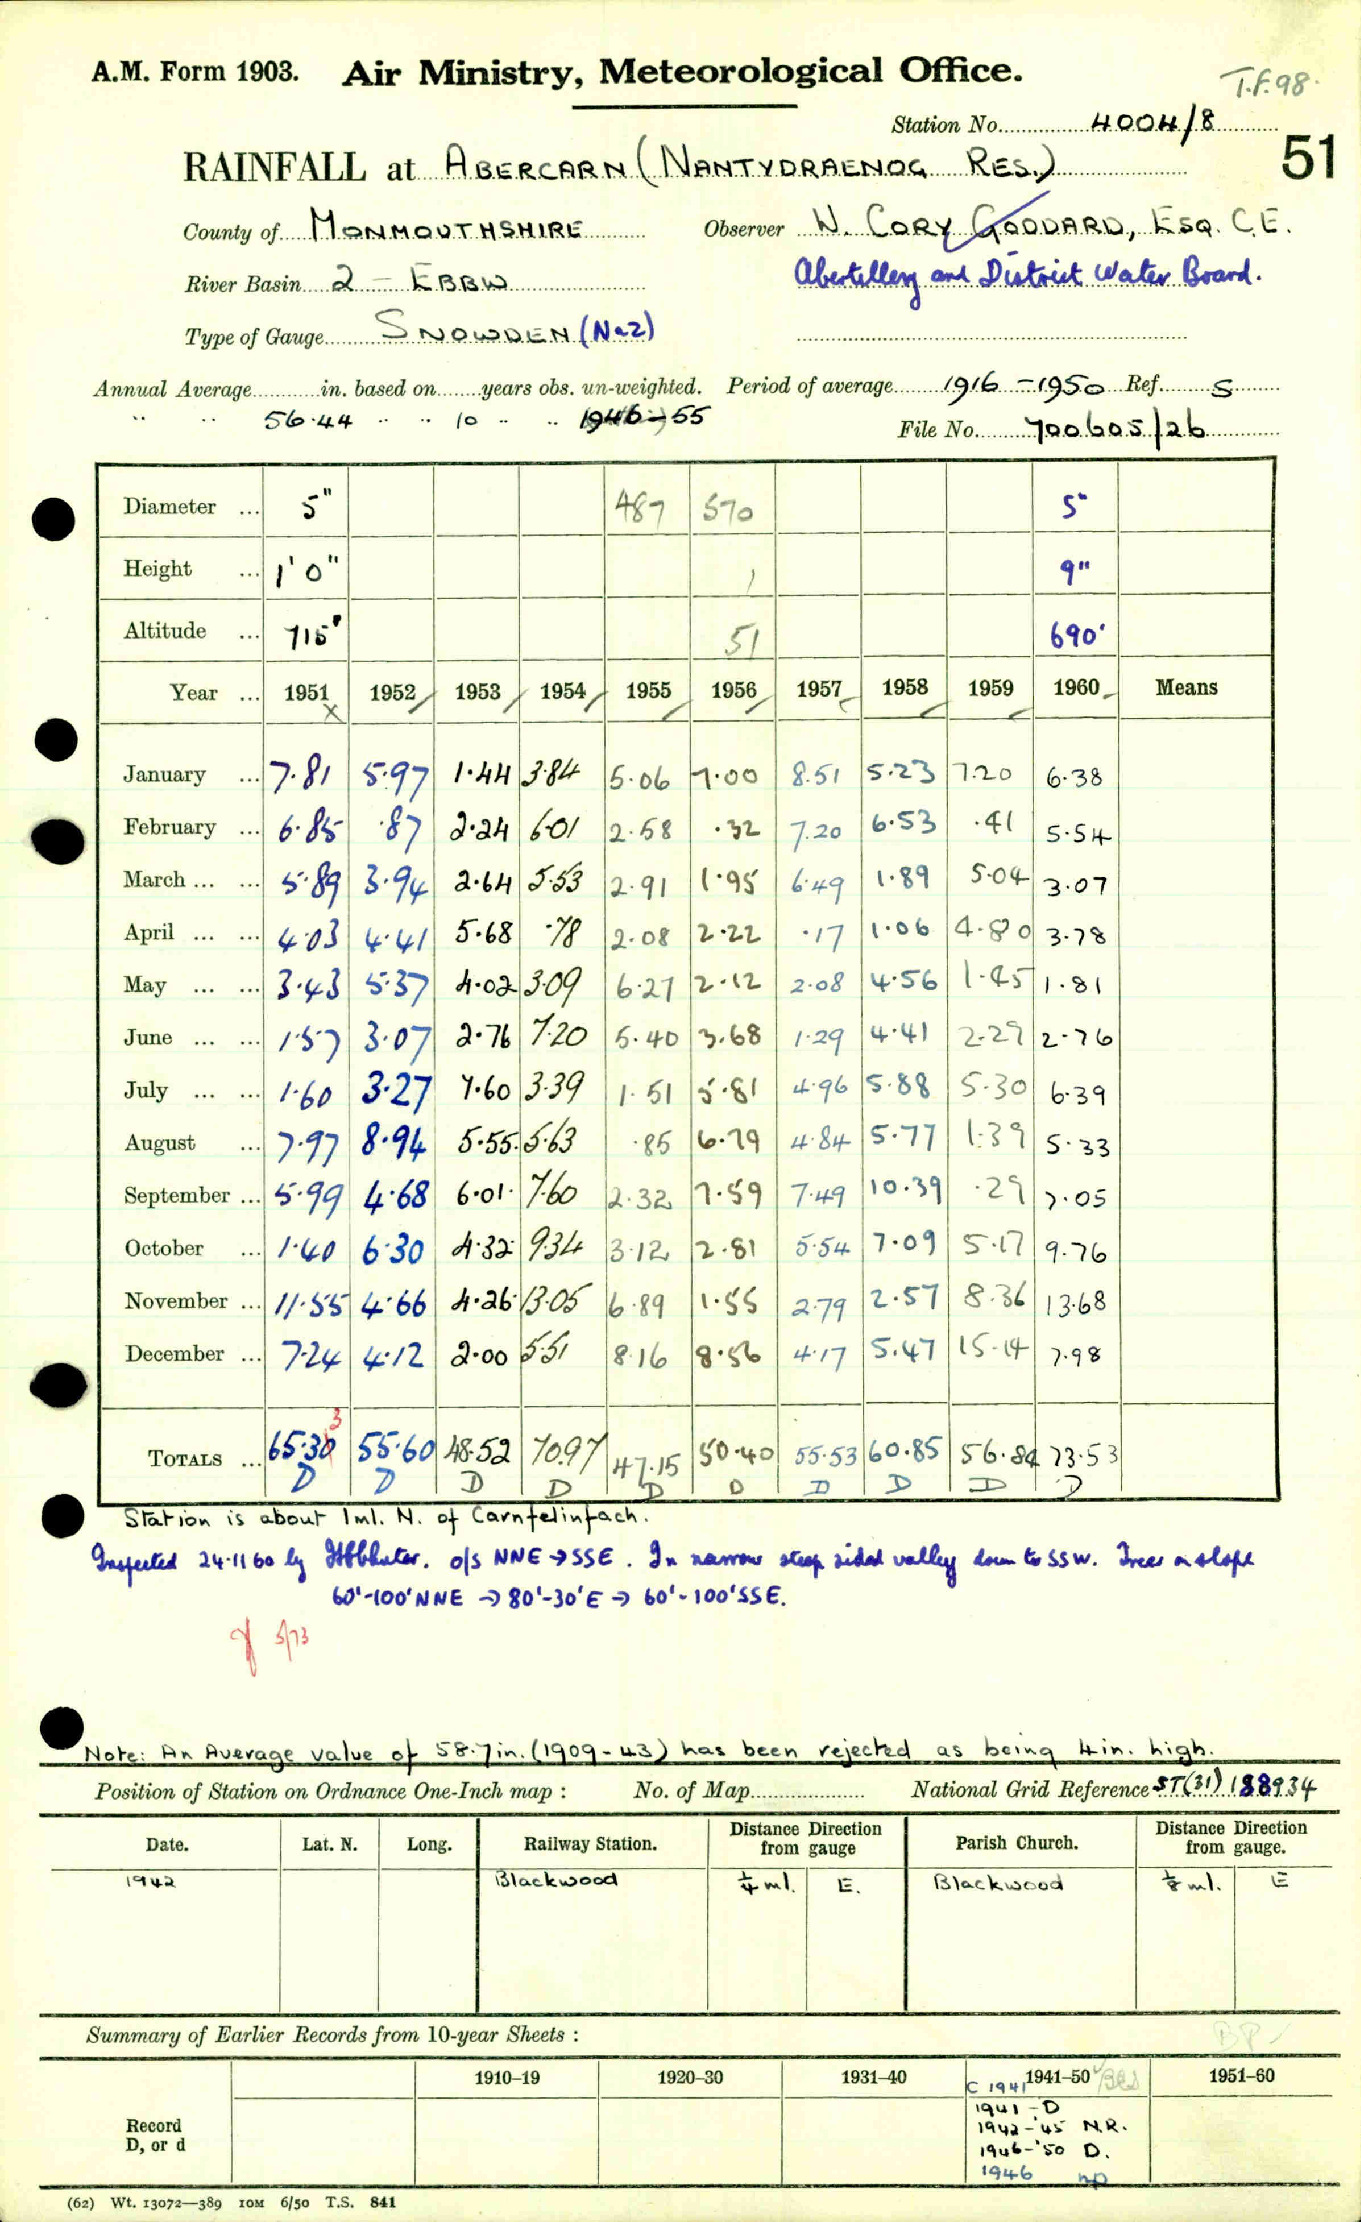 T.F.98.
A.M. Form 1903. Air Ministry, Meteorological Office.
Station No. 4004/8
51
RAINFALL at ABERCARN (NANTYDRAENOG RES.)
County of MONMOUTHSHIRE Observer W. CORY GODDARD, ESQ. C.E.
River Basin 2 - EBBW Abertillery and District Water Board.
Type of Gauge SNOWDEN (No2)
Annual Average in. based on years obs. un-weighted. Period of average 1916 - 1950 Ref. S
" " 56.44 " " 10 " " 1946-55
File No. 700605/26
Diameter ... 5" 487 570 5"
Height ... 1' 0" 1 9"
Altitude ... 715' 51 690'
Year ... 1951 1952 1953 1954 1955 1956 1957 1958 1959 1960 Means
X
January ... 7.81 5.97 1.44 3.84 5.06 7.00 8.51 5.23 7.20 6.38
February ... 6.85 .87 2.24 6.01 2.58 .32 7.20 6.53 .41 5.54
March ... ... 5.89 3.94 2.64 5.53 2.91 1.95 6.49 1.89 5.04 3.07
April ... ... 4.03 4.41 5.68 .78 2.08 2.22 .17 1.06 4.80 3.78
May ... ... 3.43 5.37 4.02 3.09 6.27 2.12 2.08 4.56 1.45 1.81
June ... ... 1.57 3.07 2.76 7.20 5.40 3.68 1.29 4.41 2.29 2.76
July ... ... 1.60 3.27 7.60 3.39 1.51 5.81 4.96 5.88 5.30 6.39
August ... 7.97 8.94 5.55 5.63 .85 6.79 4.84 5.77 1.39 5.33
September ... 5.99 4.68 6.01 7.60 2.32 7.59 7.49 10.39 .29 7.05
October ... 1.40 6.30 4.32 9.34 3.12 2.81 5.54 7.09 5.17 9.76
November ... 11.55 4.66 4.26 13.05 6.89 1.55 2.79 2.57 8.36 13.68
December ... 7.24 4.12 2.00 5.51 8.16 8.56 4.17 5.47 15.14 7.98
3
TOTALS ... 65.30 55.60 48.52 70.97 47.15 50.40 55.53 60.85 56.84 73.53
D D D D D D D D D D
Station is about 1ml. N. of Carnfelinfach.
Inspected 24.11.60 by o/s NNE → SSE. In narrow steep sided valley down to SSW. Trees on slope
60'-100' NNE → 80'-30' E → 60'-100' SSE.
5/73
Note: An Average value of 58.7in. (1909-43) has been rejected as being 4in. high.
Position of Station on Ordnance One-Inch map : No. of Map National Grid Reference ST(31) 188934
Date. Lat. N. Long. Railway Station. Distance from gauge Direction Parish Church. Distance from gauge. Direction
1942 Blackwood ¼ ml. E. Blackwood ⅛ ml. E
Summary of Earlier Records from 10-year Sheets : BP
1910–19 1920–30 1931–40 1941–50 1951–60
C 1941
Record D, or d
1941 - D
1942-'45 N.R.
1946-'50 D.
1946 np
(62) Wt. 13072—389 10M 6/50 T.S. 841